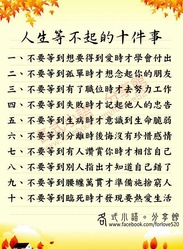 人生等不起的十件事
一、不要等到想要得到愛時才學會付出
二、不要等到孤單時才想念起你的朋友
三、不要等到有了職位時才去努力工作
四、不要等到失敗時才記起他人的忠告
五、不要等到生病時才意識到生命脆弱
六、不要等到分離時後悔沒有珍惜感情
七、不要等到有人讚賞時才相信你自己
八、不要等到別人指出才知道自己錯了
九、不要等到腰纏萬貫才準備捨窮人
十、不要等到臨死時才發現要熱愛生活
式小語。分享館
www.facebook.com/forlove520